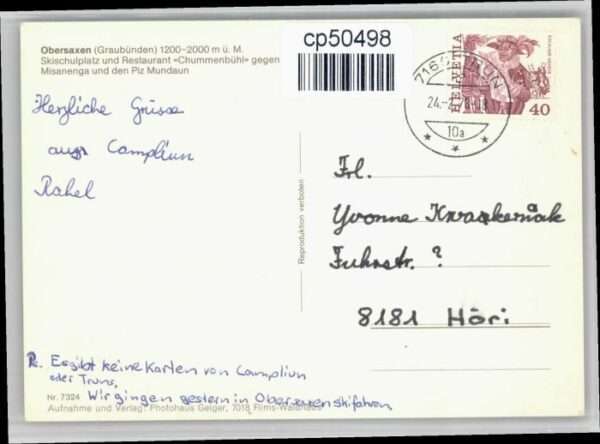 Obersaxen (Graubünden) 1200–2000 m ü. M.
Skischulplatz und Restaurant «Chummenbühl» gegen
Misanenga und den Piz Mundaun
cp50498
HELVETIA
40
24.-
10a
Herzliche Grüsse
aus Campliun
Rahel
Frl.
Yvonne
Fuhrstr. ?
8181 Höri
Reproduktion verboten
Es gibt keine Karten von Campliun
oder Truns,
Wir gingen gestern in Obersaxen skifahren
Nr. 7324
Aufnahme und Verlag: Photohaus Geiger, 7018 Flims-Waldhaus